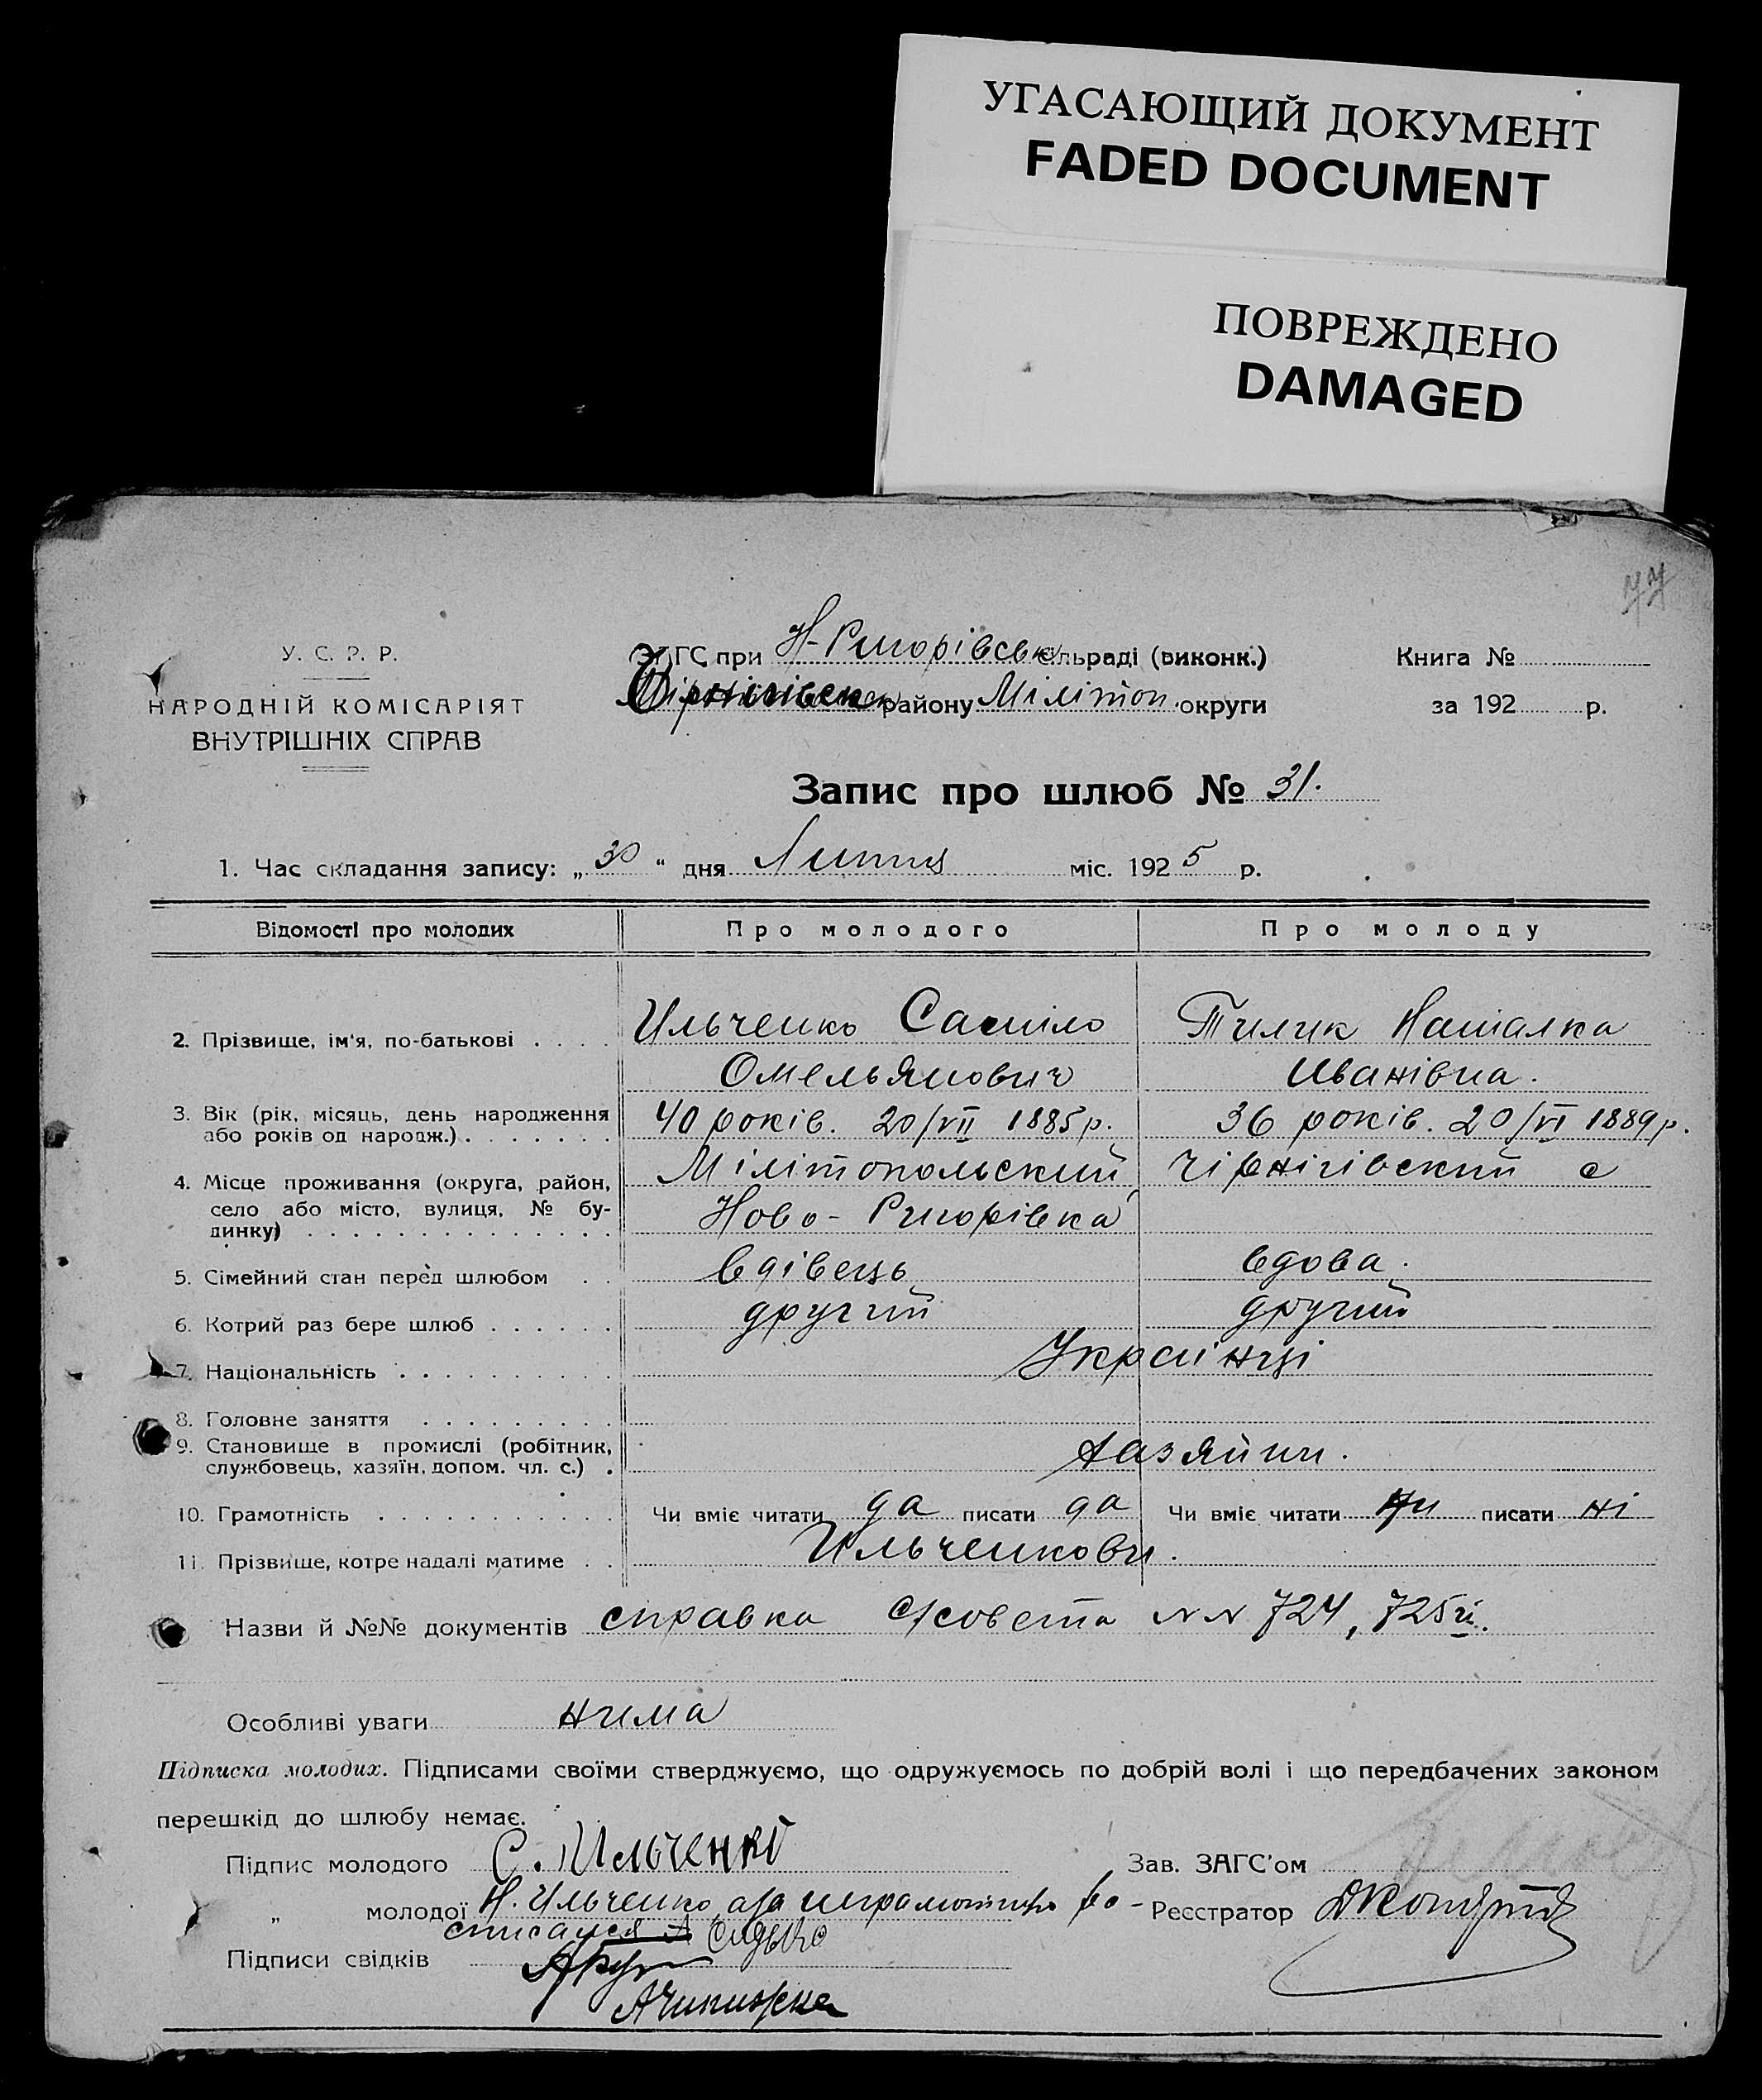 УГАСАЮЩИЙ ДОКУМЕНТ
FADED DOCUMENT
ПОВРЕЖДЕНО
DAMAGED
77
У. С. Р. Р.
НАРОДНІЙ КОМІСАРІЯТ
ВНУТРІШНІХ СПРАВ
ЗАГС при Н-Ригорівськ сільраді (виконк.)
району Мілітоп. округи
Книга №
за 192 р.
Запис про шлюб № 31.
1. Час складання запису: „30“ дня Липня міс. 1925 р.
Відомості про молодих Про молодого Про молоду
2. Прізвище, ім'я, по-батькові . . . . Ильченко Самійло Тилик Наталка
Омельянович Иванівна.
3. Вік (рік, місяць, день народження 40 років. 20/VII 1885 р. 36 років. 20/VI 1889 р.
або років од народж.) . . . . . . .
4. Місце проживання (округа, район, Мілітопольский, Чірнігівский с
село або місто, вулиця, № бу- Ново-Ригорівка
динку) . . . . . . . . . . . . .
5. Сімейний стан перед шлюбом . . вдівець вдова.
6. Котрий раз бере шлюб . . . . . . другий другий
7. Національність . . . . . . . . . . Українці
8. Головне заняття . . . . . . . . .
9. Становище в промислі (робітник, Хазяйни.
службовець, хазяїн, допом. чл. с.) .
10. Грамотність . . . . . . . . . . . Чи вміє читати да писати да Чи вміє читати ни писати ні
11. Прізвище, котре надалі матиме . . Ильченкови.
Назви й №№ документів справка с/совета N N 724, 725й.
Особливі уваги нима
Підписка молодих. Підписами своїми стверджуємо, що одружуємось по добрій волі і що передбачених законом
перешкід до шлюбу немає.
Підпис молодого С. Ильченко Зав. ЗАГС'ом
„ молодої Н. Ильченко, а за ниграмотную ро- Реєстратор
списался А Сидько
Підписи свідків